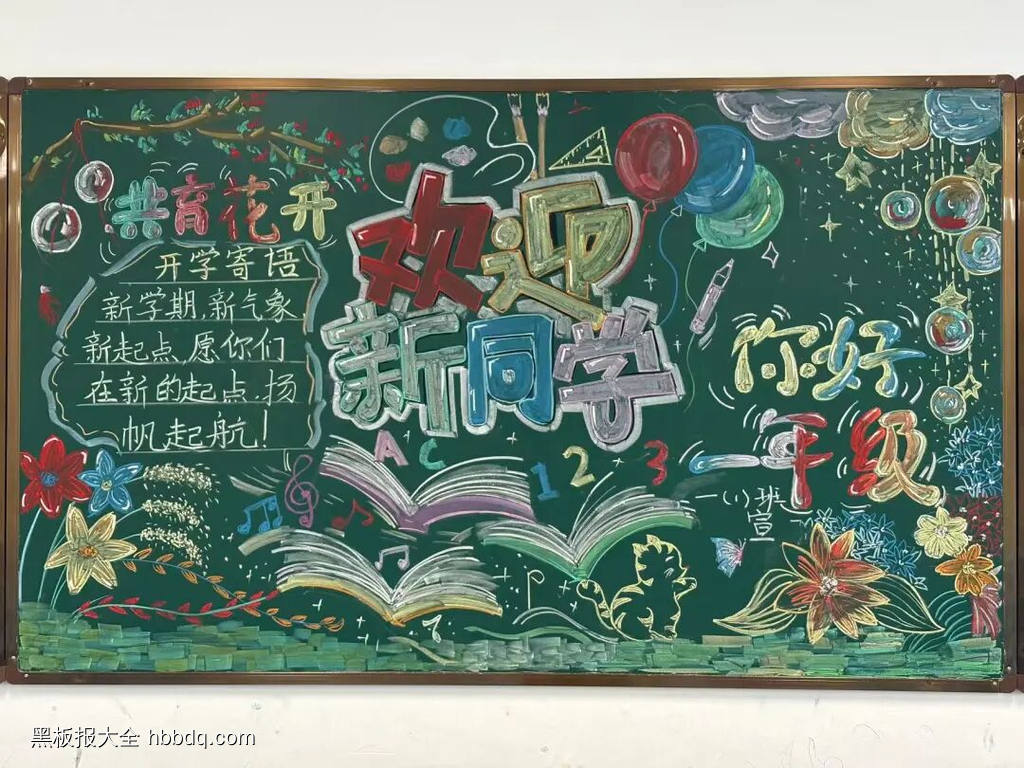 共育花开
开学寄语
新学期,新气象
新起点,愿你们
在新的起点.扬
帆起航!
欢迎
新同学
A C
1 2 3
你好
一年级
一(1)班
宣
黑板报大全 hbbdq.com